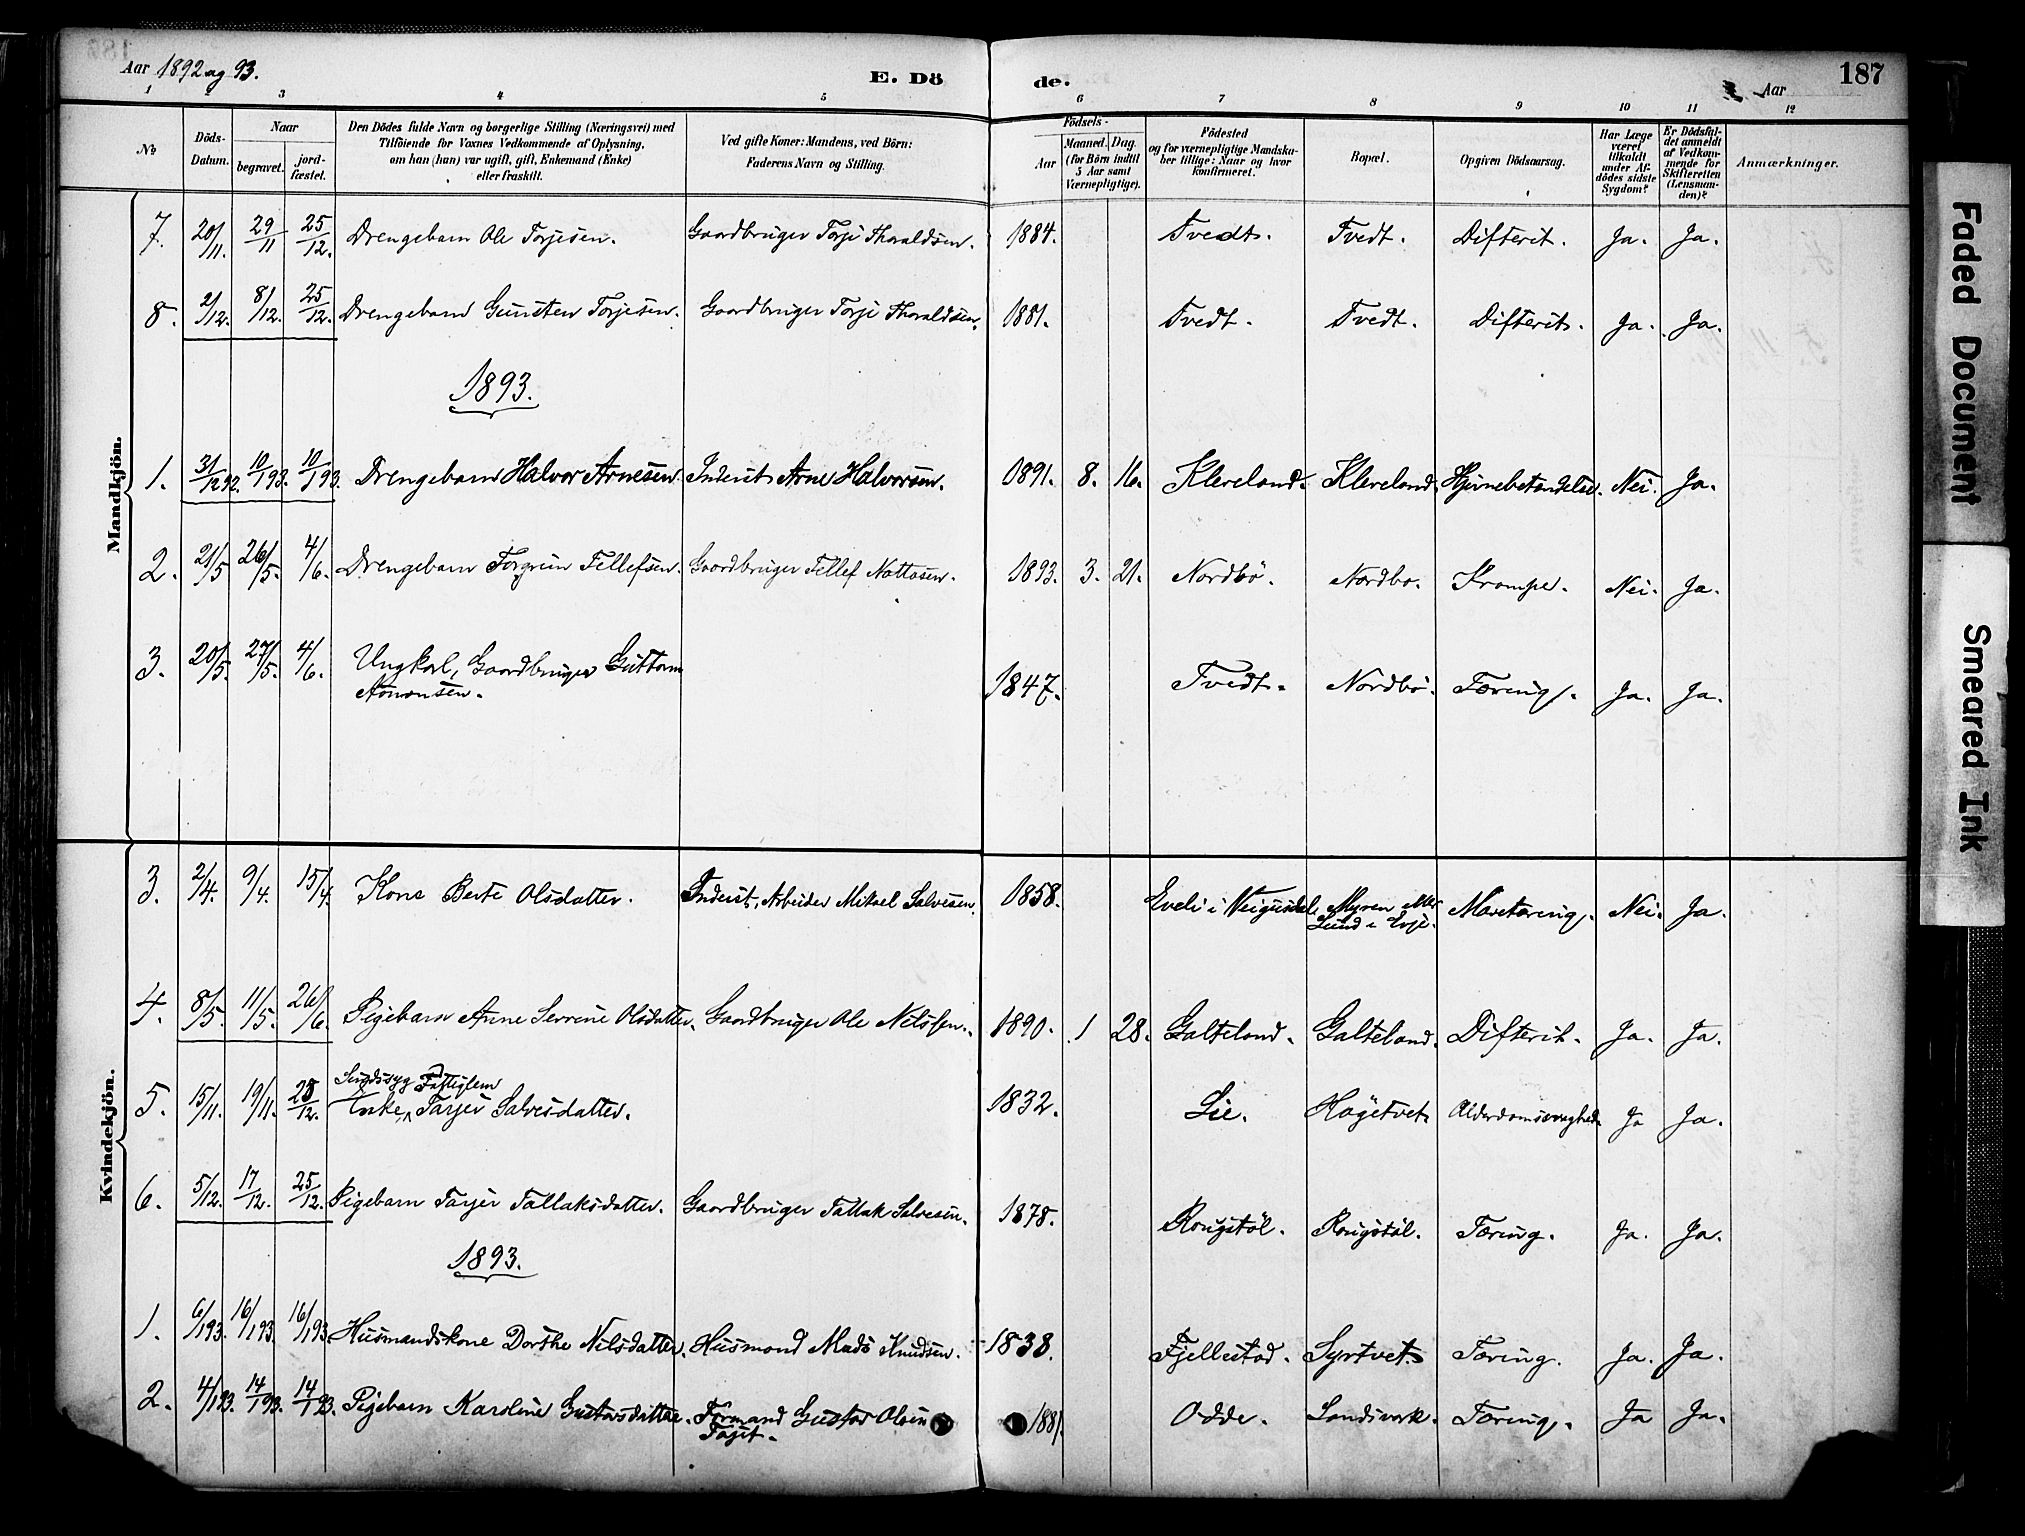 Aar 1892 og 93. E. Dö de. Aar 187
1 2 3 4 5 6 7 8 9 10 11 12
№ Döds-Datum. Naar begravet. jordfæstet. Den Dödes fulde Navn og borgerlige Stilling (Næringsvei) med Tilföiende for Voxnes Vedkommende af Oplysning, om han (hun) var ugift, gift, Enkemand (Enke) eller fraskilt. Ved gifte Koner: Mandens, ved Börn: Faderens Navn og Stilling. Födsels- Aar Maaned. Dag. (for Börn indtil 5 Aar samt Værnepligtige). Födested og for værnepligtige Mandskaber tillige: Naar og hvor konfirmeret. Bopæl. Opgiven Dödsaarsag. Har Læge været tilkaldt under Afdödes sidste Sygdom? Er Dödsfaldet anmeldt af Vedkommende for Skifteretten (Lensmanden)? Anmærkninger.
Mandkjön.
7. 20/11. 29/11 25/12. Drengebarn Ole Torjesen. Gaardbruger Torje Thoraldsen. 1884. Tvedt. Tvedt. Difterit. Ja. Ja.
8. 2/12. 8/12. 25/12. Drengebarn Gunsten Torjesen. Gaardbruger Torje Thoraldsen. 1881. Tvedt. Tvedt. Difterit. Ja. Ja.
1893.
1. 31/12 92. 10/1 93. 10/1 93. Drengebarn Halvor Arnesen. Inderst Arne Halvorsen. 1891. 8. 16. Kleveland. Kleveland. Hjernebetændelse. Nei. Ja.
2. 21/5 26/5. 4/6. Drengebarn Torgrim Tellefsen. Gaardbruger Tellef Nottosen. 1893. 3. 21. Nordbö. Nordbö. Krampe. Nei. Ja.
3. 20/5. 27/5. 4/6. Ungkarl, Gaardbruger Guttorm
Aanonsen. 1847. Tvedt. Nordbö. Tæring. Ja. Ja.
Kvindekjön.
3. 2/4. 9/4. 15/4. Kone Berte Olsdatter. Inderst, Arbeider Mikael Salvesen. 1858. Eveli i Veigusdal. Myren
Lund i Evje. Mavetæring. Nei. Ja.
4. 8/5. 11/5. 26/6. Pigebarn Anne Serrine Olsdatter. Gaardbruger Ole Nilssen. 1890. 1 28. Galteland. Galteland. Difterit. Ja. Ja.
Sindssyg Fattiglem
5. 15/11. 19/11. 25/12. Enke, Tarjer Salvesdatter. 1832. Lie. Högetvet. Alderdomssvaghed. Ja Ja.
6. 5/12. 17/12. 25/12. Pigebarn Tarjer Tallaksdatter. Gaardbruger Tallak Salvesen. 1878. Rougstöl. Rougstöl. Tæring. Ja. Ja.
1893.
1. 6/1 93. 16/1 93. 16/1 93. Husmandskone Dorthe Nilsdatter. Husmand Mads Knudsen. 1838. Fjellestad. Syrtvet. Tæring. Ja. Ja.
2. 4/1 93. 14/1 93. 14/1 93. Pigebarn Karoline Gustavsdatter. Formand Gustav Olsen
1881. Odde. Landsverk. Tæring. Ja Ja.
Faded Document
Smeared Ink